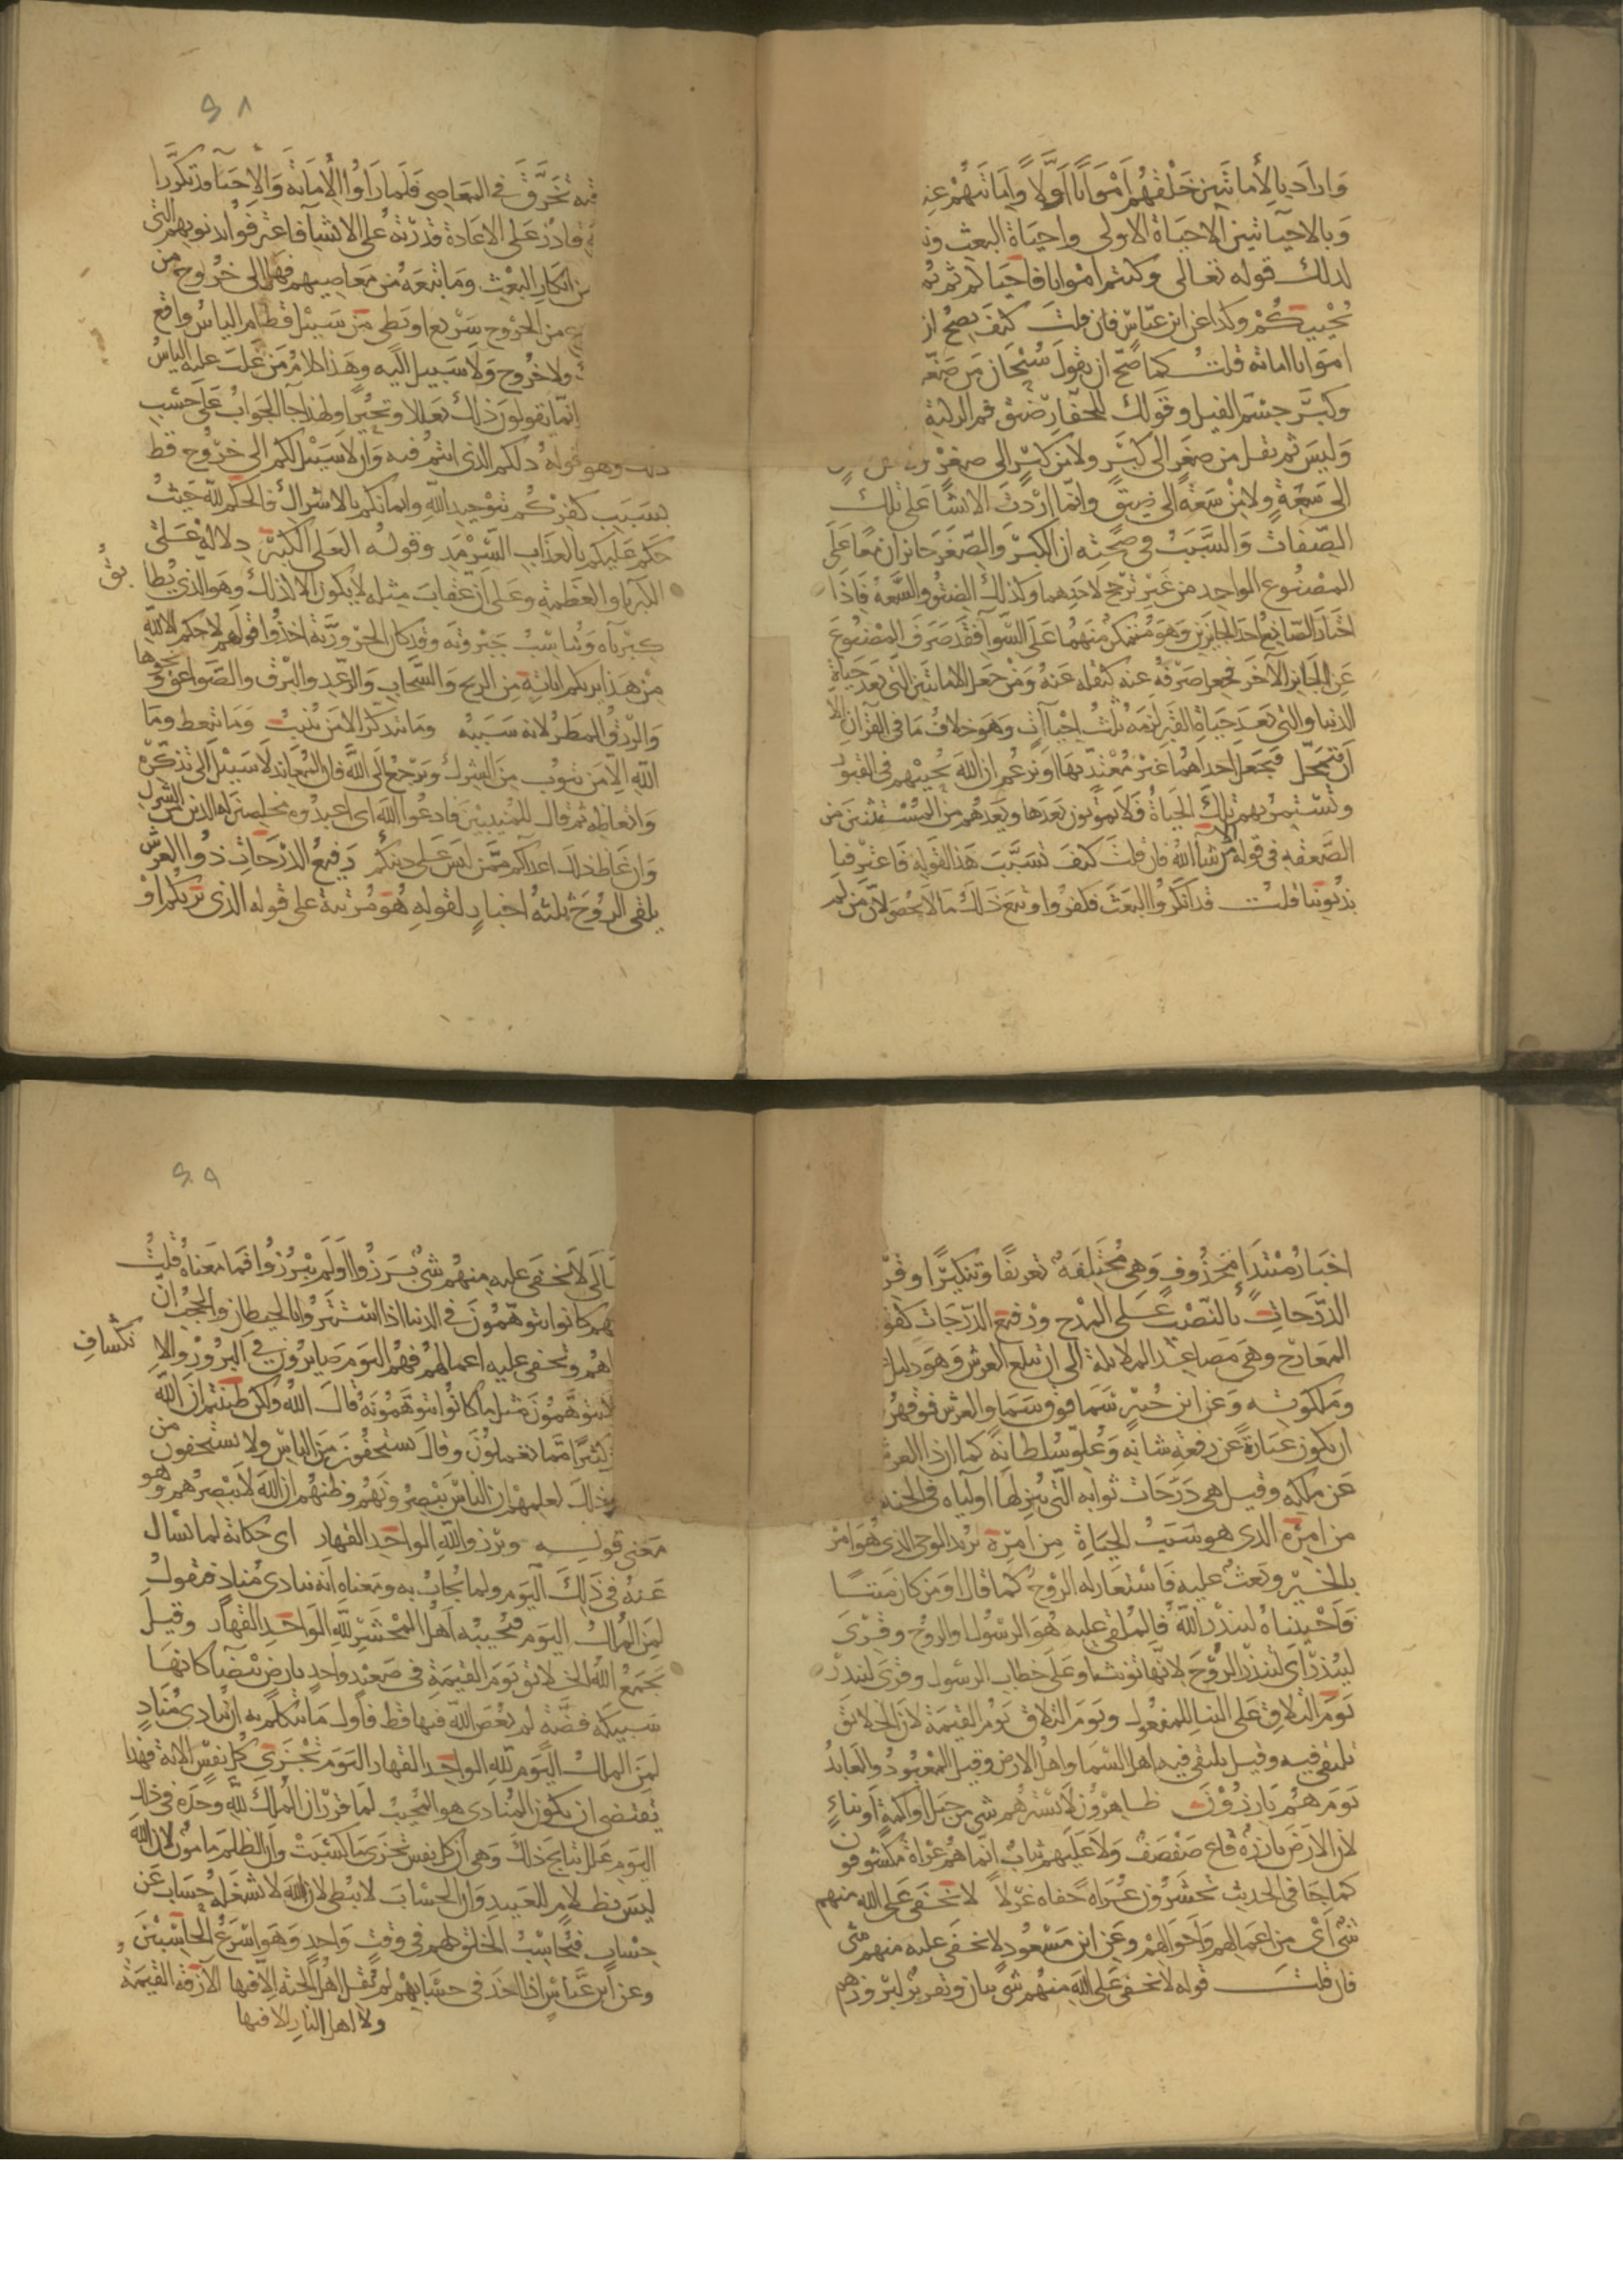 وارادبالأماتتين خلقهم امواتا اولا واماتتهم عند
وبالاحياتين الاحياة الاولى واحياة البعث
لذلك قوله تعالى وكنتم امواتا فاحياكم ثم
يحييكم وكذا عن ابن عباس فان قلت كيف يصح ان
امواتا اماتة قلت كما صح ان يقول سبحان من صغر
وكبر جسم الفيل وقولك للحفار ضيق فم الركية
وليس ثم نقل من صغر الى كبر ولا من كبر الى صغر
الى سعة ولا من سعة الى ضيق وانما اردت الانشا على تلك
الصفات والسبب فى صحته ان الكبر والصغر جائزان معا على
المصنوع الواحد من غير ترجح لاحدهما وكذلك الضيق والسعة فاذا
اختار الصانع احد الجايزين وهو متمكن منهما على السوآ فقد صرف المصنوع
عن الجايز الآخر فجعل صرفه عنه كنقله عنه ومن جعل الاماتتين التى بعد حياة
الدنيا والتى بعد حياة القبر لزمه ثلث احياآت وهو خلاف ما فى القرآن الا
ان يتمحل فيجعل احداهما غير معتد بها او يزعم ان الله يحييهم فى القبور
وتستمر بهم تلك الحياة فلا يموتون بعدها ويعدهم من المستثنين من
الصعقه فى قوله الا من شآ الله فان قلت كيف تسبب هذا لقوله فاعترفنا
بذنوبنا قلت قد انكروا البعث فكفروا وتبع ذلك ما لا يحصى لان من لم
تخرق فى المعاصى فلما راوا الاماتة والاحيآ قد تكررا
قادر على الاعادة قدرته على الانشآ فاعترفوا بذنوبهم التى
من انكار البعث وما تبعه من معاصيهم فهل الى خروج من
من الخروج سريع او بطى من سبيل قط ام الياس واقع
ولا خروج ولا سبيل اليه وهذا كلام من غلب عليه الياس
انما يقولون ذلك تعللا وتحيرا ولهذا جآ الجواب على حسب
ذلك وهو قوله ذلكم الذى انتم فيه وان لا سبيل لكم الى خروج قط
بسبب كفركم بتوحيد الله وايمانكم بالاشراك فالحكم لله حيث
حكم عليكم بالعذاب السرمد وقوله العلى الكبير دلالة على
الكبريا والعظمة وعلى ان عقاب مثله لا يكون الا كذلك وهو الذى يطابق
كبريآه ويناسب جبروته وقيل كان الحرورية اخذوا قولهم لا حكم الا لله
من هذا يريكم اياته من الريح والسحاب والرعد والبرق والصواعق ونحوها
والرزق المطر لانه سببه وما يتذكر الا من ينيب وما يتعظ وما
الله الا من يتوب من الشرك ويرجع الى الله فان المعاند لا سبيل الى تذكره
واتعاظه ثم قال للمنيبين فادعوا الله اى اعبدوه مخلصين له الدين من الشرك
وان غاظ ذلك اعداكم ممن ليس على دينكم رفيع الدرجات ذوا العرش
يلقى الروح ثلثة اخبار لقوله هو مرتبة على قوله الذى يريكم او
اخبار مبتدا محذوف وهى مختلفة تعريفا وتنكيرا وقرى
الدرجات بالنصب على المدح ورفيع الدرجات كقوله
المعارج وهى مصاعد الملائكة الى ان تبلغ العرش وهو دليل
وملكوته وعن ابن جبير سما فوق سما والعرش فوقهن
ان يكون عبارة عن رفعة شانه وعلو سلطانه كما ان ذا العرش
عن ملكه وقيل هى درجات ثوابه التى ينزلها اوليآه فى الجنة
من امره الذى هو سبب الحياة من امره يريد الوحى الذى هو امر
بالخير وبعث عليه فاستعار له الروح كما قال او من كان ميتا
فاحييناه لينذر الله فالملقى عليه هو الرسول او الروح وقرى
لينذر اى لتنذر الروح لانها تونث او على خطاب الرسول وقرى لينذر
يوم التلاق على البنا للمفعول ويوم التلاق يوم القيمة لان الخلائق
تلتقى فيه وقيل يلتقى فيه اهل السما واهل الارض وقيل المعبود والعابد
يوم هم بارزون ظاهرون لا يسترهم شى من جبل او اكمة او بناء
لان الارض بارزة قاع صفصف ولا عليهم ثياب انما هم عراة مكشوفون
كما جا فى الحديث يحشرون عراة حفاة غرلا لا يخفى على الله منهم
شى اى من اعمالهم واحوالهم وعن ابن مسعود لا يخفى عليه منهم شى
فان قلت قوله لا يخفى على الله منهم شى بيان وتقرير لبروزهم
لا يخفى عليه منهم شى برزوا او لم يبرزوا فما معناه قلت
كانوا يتوهمون فى الدنيا اذا استتروا بالحيطان والحجب ان
ويخفى عليه اعمالهم فهم اليوم صايرون فى البروز والانكشاف
يتوهمون مثل ما كانوا يتوهمونه قال الله ولكن ظننتم ان الله
كثيرا مما تعملون وقال يستخفون من الناس ولا يستخفون من
وذلك لعلمهم ان الناس يبصرونهم وظنهم ان الله لا يبصرهم وهو
معنى قوله وبرزو الله الواحد القهار اى حكاية لما يسال
عنه فى ذلك اليوم ولما يجاب به ومعناه انه ينادى مناد فيقول
لمن الملك اليوم فيجيبه اهل المحشر لله الواحد القهار وقيل
يجمع الله الخلائق يوم القيمة فى صعيد واحد بارض بيضآ كانها
سبيكة فضة لم يعص الله فيها قط فاول ما يتكلم به ان ينادى مناد
لمن الملك اليوم لله الواحد القهار اليوم تجزى كل نفس الاية فهذا
يقتضى ان يكون المنادى هو المجيب لما قرر ان الملك لله وحده فى ذلك
اليوم عدد نتايج ذلك وهى ان كل نفس تجزى ما كسبت وان الظلم مامون لان الله
ليس بظلام للعبيد وان الحساب لا يبطى لان الله لا يشغله حساب عن
حساب فيحاسب الخلق كلهم فى وقت واحد وهو اسرع الحاسبين
وعن ابن عباس اذا اخذ فى حسابهم لم يقل اهل الجنة الا فيها
ولا اهل النار الا فيها
الآزفة القيمة